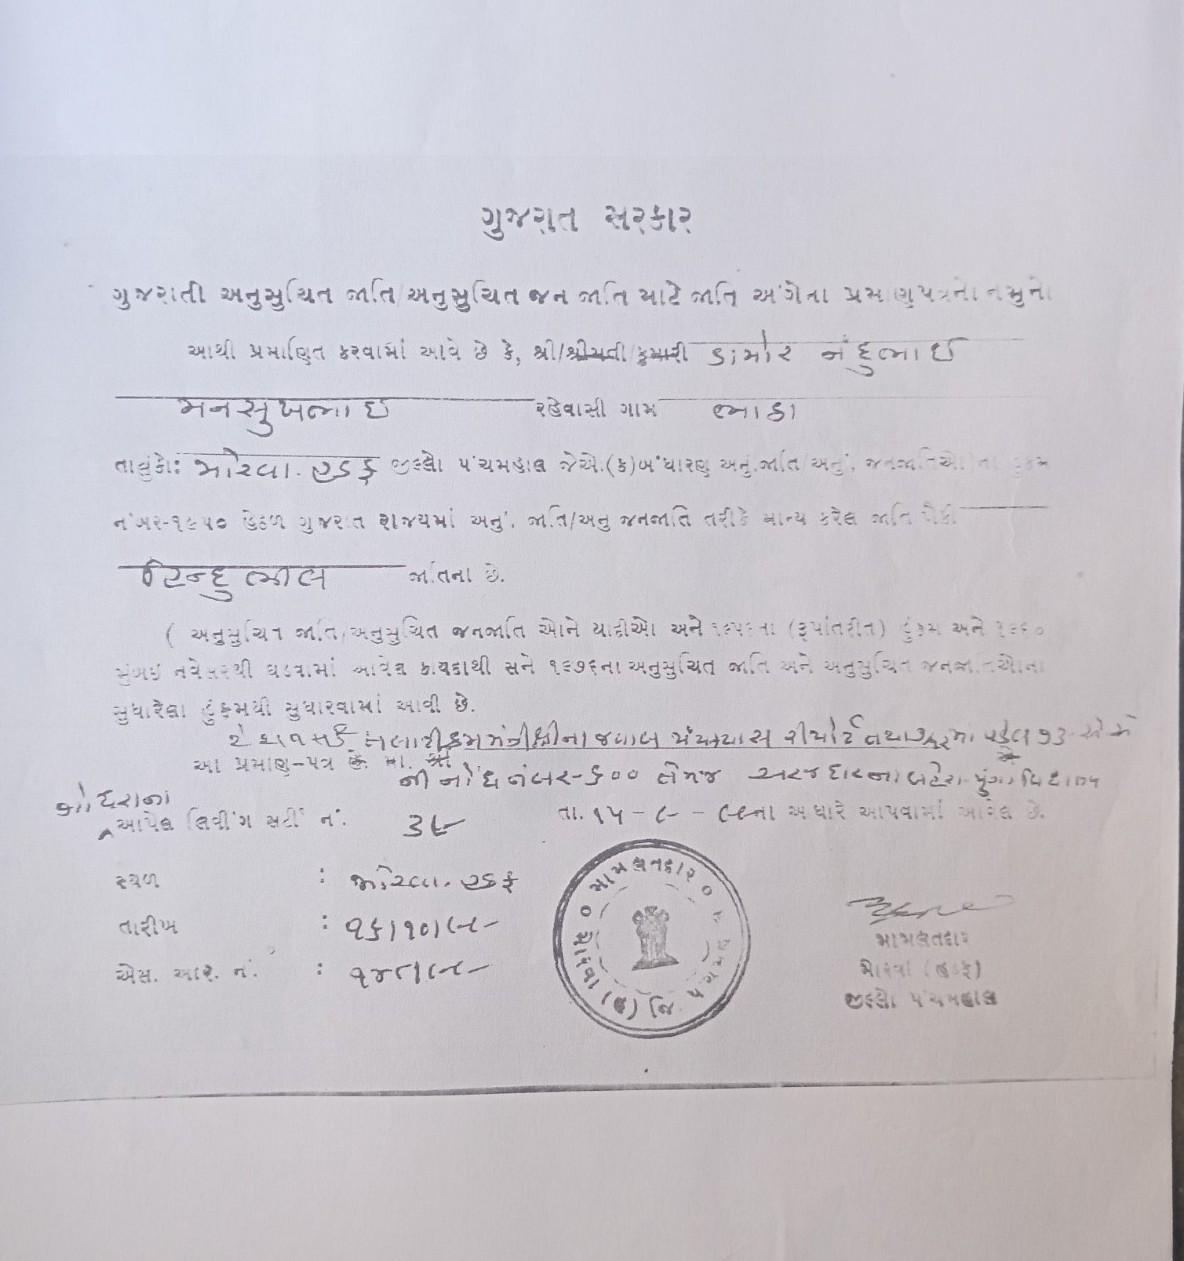 ગુજરાત સરકાર
ગુજરાતી અનુસુચિત જાતિ/અનુસુચિત જન જાતિ માટે જાતિ અંગેના પ્રમાણપત્રનો નમુનો
આથી પ્રમાણિત કરવામાં આવે છે કે, શ્રી/શ્રીમતી/કુમારી ડામોર નંદુભાઈ
મનસુખભાઈ રહેવાસી ગામ
તાલુકો: મોરવા. હડફ જીલ્લો પંચમહાલ જેએ.(ક) બંધારણ અનુ.જાતિ/અનુ. જનજાતિઓના હુકમ
નંબર-૧૯૫૦ હેઠળ ગુજરાત રાજયમાં અનુ. જાતિ/અનુ જનજાતિ તરીકે માન્ય કરેલ જાતિ પૈકી
હિન્દુ ભીલ જાતિના છે.
( અનુસુચિત જાતિ/અનુસુચિત જનજાતિ ઓને યાદીઓ અને (રૂપાંતરીત) હુકમ અને ૧૯૬૦
મુંબઇ ઘડવામાં આવેલ કાયદાથી સને ૧૯૭૬ના અનુસુચિત જાતિ અને અનુસુચિત જનજાતિઓના
સુધારેલા હુકમથી સુધારવામાં આવી છે.
તલાટી કમ મંત્રીશ્રીના જવાબ પંચક્યાસ રીપોર્ટ તથા
આ પ્રમાણ-પત્ર
ની નોંધ નંબર-૬૦૦ તેમજ અરજદારના
ગોધરાના
આપેલ લિવીંગ સર્ટી નં. ૩૯ તા. ૧૫-૯-૯૯ના આધારે આપવામાં આવેલ છે.
સ્થળ : મોરવા. હડફ
તારીખ : ૧૬/૧૦/૯૯
એસ. આર. નં. :
મામલતદાર
મોરવા (હ) જિ.
મામલતદાર
મોરવા (હડફ)
જીલ્લો પંચમહાલ